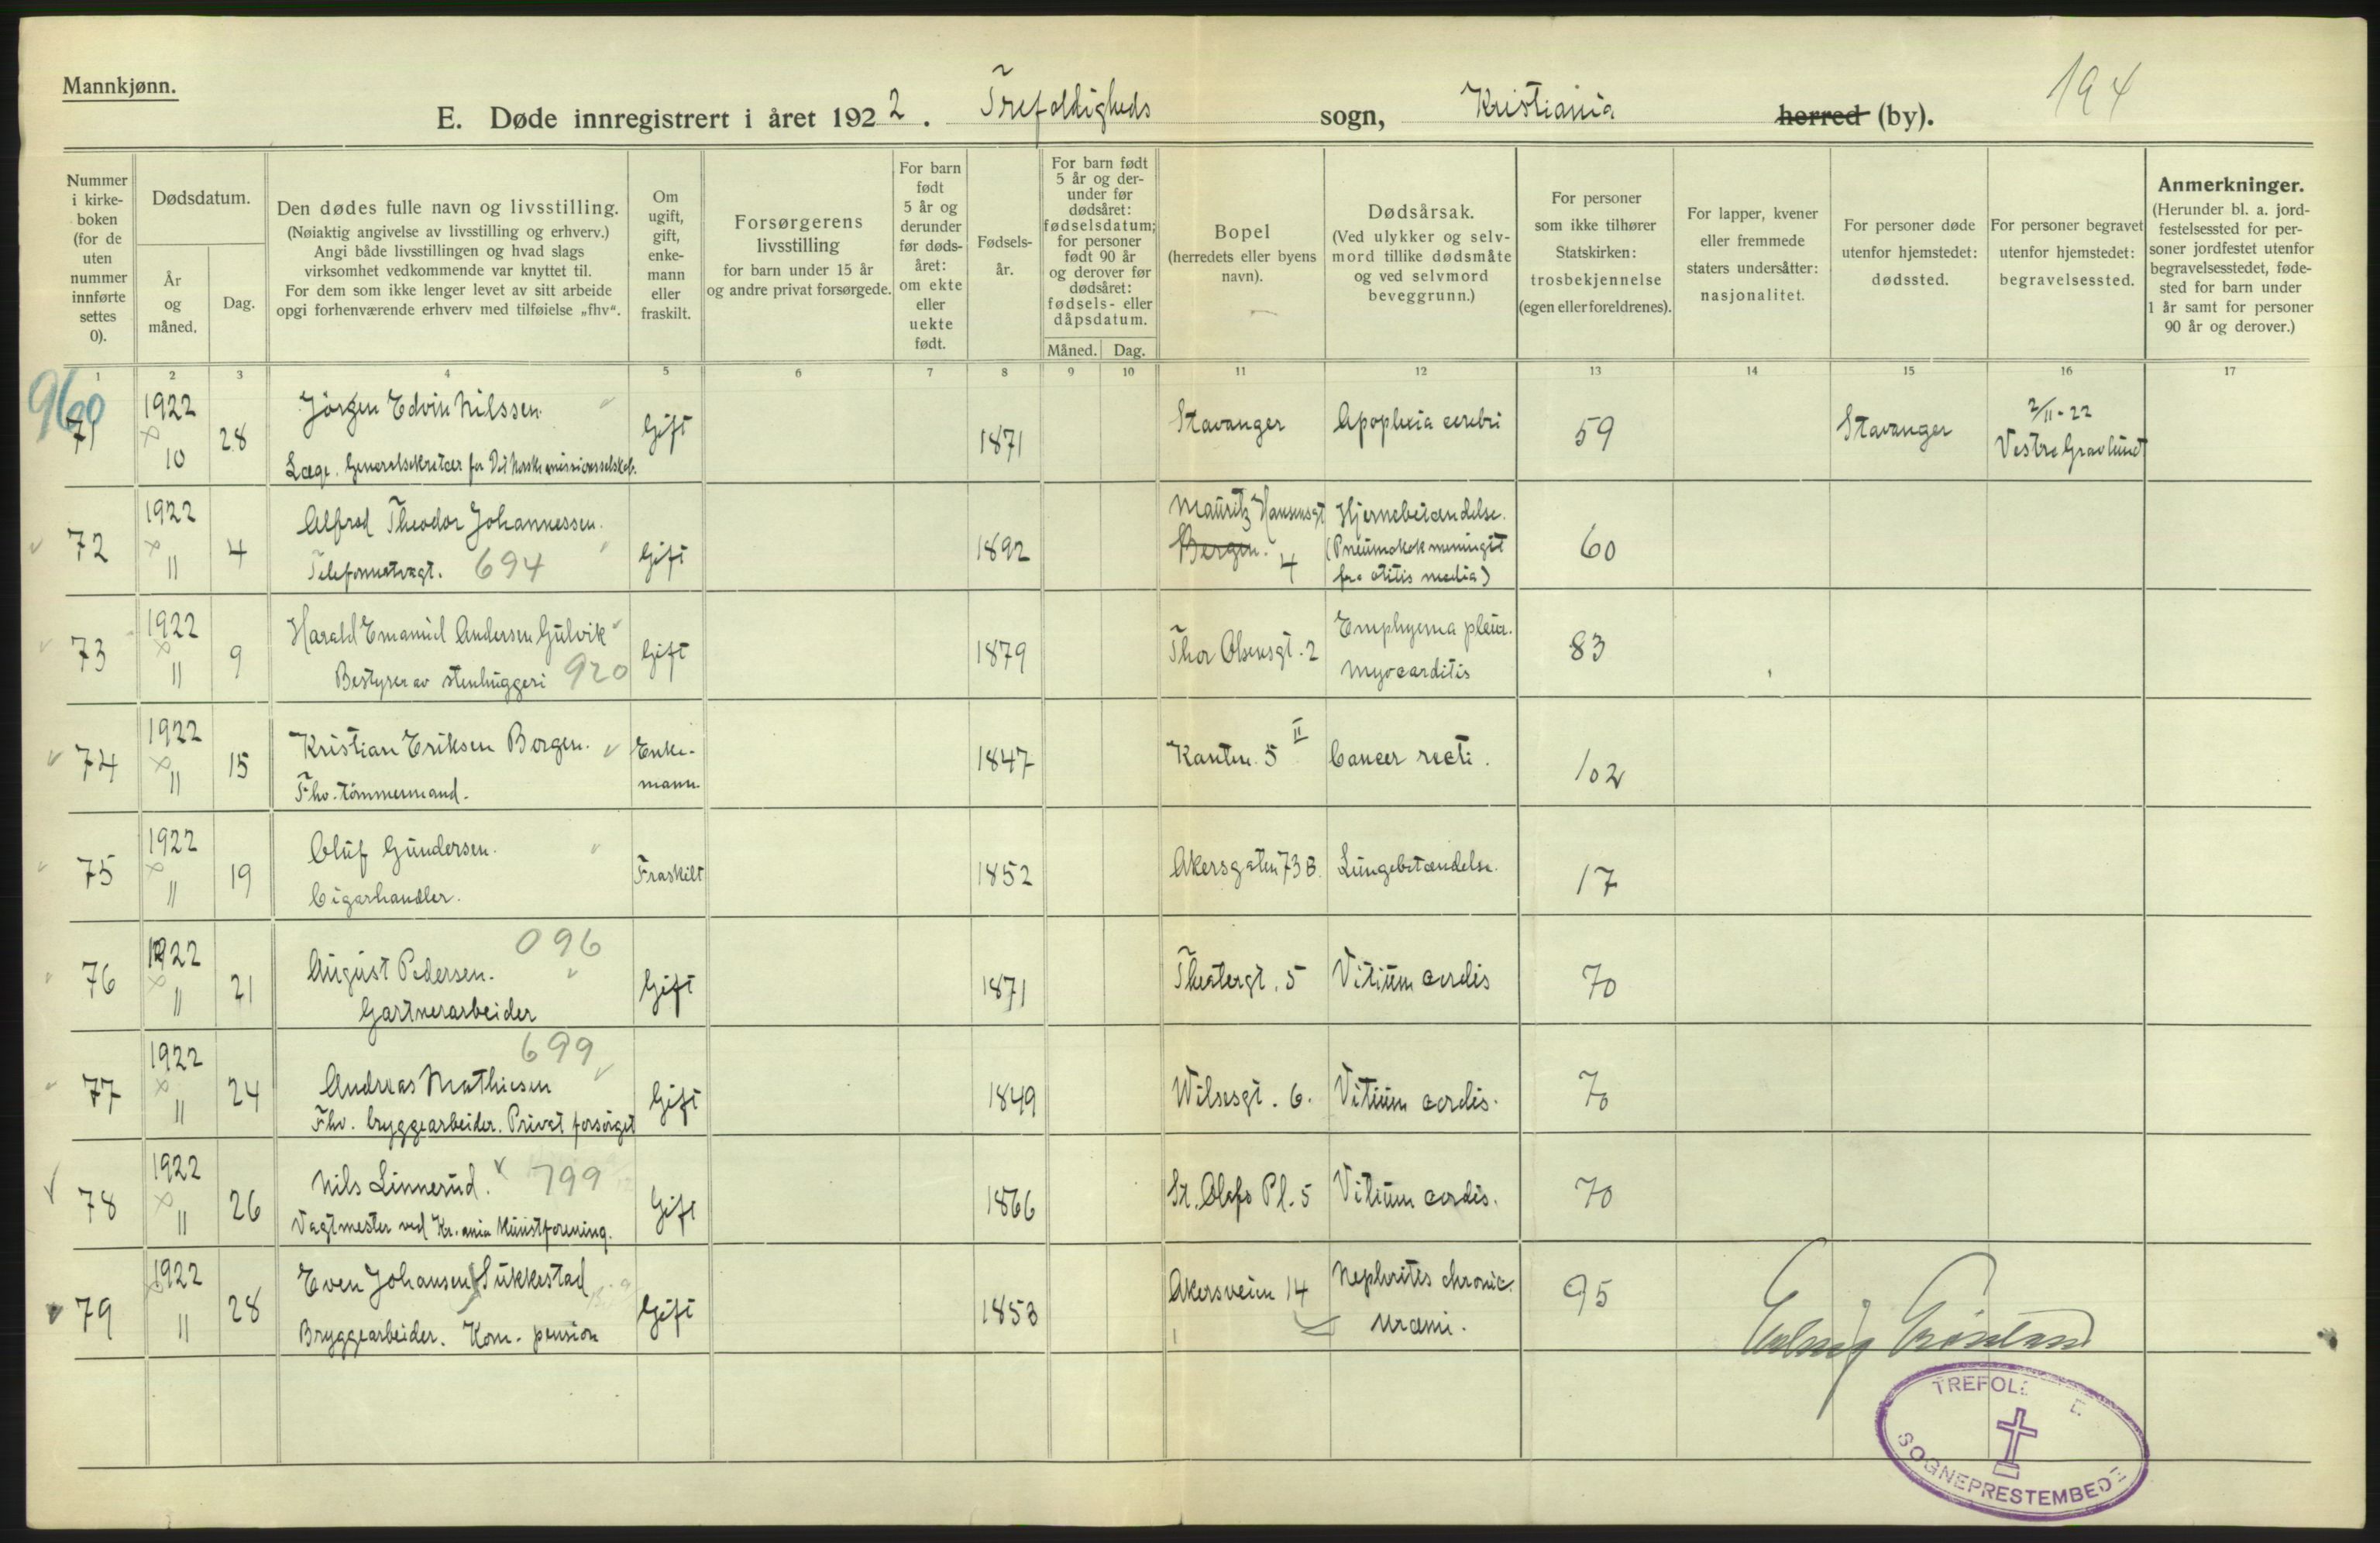 Mannkjønn.
194
E. Døde innregistrert i året 1922. Trefoldigheds sogn, Kristiania herred (by).
Nummer i kirke-boken (for de uten nummer innførte settes 0).
Dødsdatum.
År og måned.
Dag.
Den dødes fulle navn og livsstilling.
(Nøiaktig angivelse av livsstilling og erhverv.)
Angi både livsstillingen og hvad slags
virksomhet vedkommende var knyttet til.
For dem som ikke lenger levet av sitt arbeide
opgi forhenværende erhverv med tilføielse „fhv“.
Om ugift, gift, enke-mann eller fraskilt.
Forsørgerens livsstilling
for barn under 15 år
og andre privat forsørgede.
For barn født 5 år og derunder før døds-året: om ekte eller uekte født.
Fødsels-år.
For barn født 5 år og der-under før dødsåret: fødselsdatum; for personer født 90 år og derover før dødsåret: fødsels- eller dåpsdatum.
Måned. Dag.
Bopel
(herredets eller byens navn).
Dødsårsak.
(Ved ulykker og selv-mord tillike dødsmåte og ved selvmord beveggrunn.)
For personer som ikke tilhører Statskirken: trosbekjennelse (egen eller foreldrenes).
For lapper, kvener eller fremmede staters undersåtter: nasjonalitet.
For personer døde utenfor hjemstedet: dødssted.
For personer begravet utenfor hjemstedet: begravelsessted.
Anmerkninger.
(Herunder bl. a. jord-festelsessted for per-soner jordfestet utenfor begravelsesstedet, føde-sted for barn under 1 år samt for personer 90 år og derover.)
1 2 3 4 5 6 7 8 9 10 11 12 13 14 15 16 17
960
71 1922 10 28 Jörgen Edvin Nilssen. Gift 1871 Stavanger Apoplexia cerebri 59 Stavanger 2/11-22 Vestre Gravlund
Læge. Generalsekretær for Det Norske missionsselskab.
72 1922 11 4 Alfred Theodor Johannessen. Gift 1892 Mauritz Hansensgt 4 Bergen. Hjernebetændelse.
Telefonnetvagt. 694 (Pneumokokmeningit fra otitis media) 60
73 1922 11 9 Harald Emanuel Andersen Gulvik Gift 1879 Thor Olsensgt. 2 Emphyema pleur. 83
Bestyrer av stenhuggeri 920 Myocarditis
74 1922 11 15 Kristian Eriksen Borgen. Enke-mann. 1847 Kanten 5 II Cancer recti. 102
Fhv. tömmermand.
75 1922 11 19 Oluf Gundersen. Fraskilt 1852 Akersgaten 73 B. Lungebetændelse. 17
Cigarhandler.
76 1922 11 21 August Pedersen. 096 Gift 1871 Theatergt. 5 Vitium cordis 70
Gartnerarbeider
77 1922 11 24 Andreas Mathiesen 699 Gift 1849 Wilsesgt. 6. Vitium cordis. 70
Fhv. bryggearbeider. Privat forsörget
78 1922 11 26 Nils Linnerud. 799 Gift 1866 St. Olafs Pl. 5 Vitium cordis. 70
Vagtmester ved Kr.ania Kunstforening.
79 1922 11 28 Even Johansen Sukkestad Gift 1853 Akersveien 14 Nephritis chronic. 95
Bryggearbeider. Kom. pension Uræmi.
TREFOL
SOGNEPRESTEMBEDE